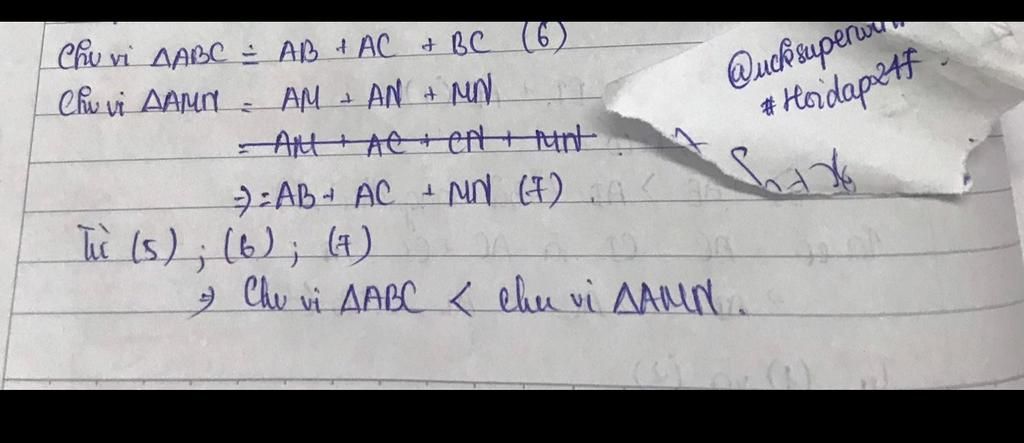 Chu vi ΔABC = AB + AC + BC (6)
Chu vi ΔAMN = AM + AN + MN
= AM + AC + CN + MN
⇒ = AB + AC + MN (7)
Từ (5) ; (6) ; (7)
⇒ Chu vi ΔABC < chu vi ΔAMN.
# Hoidap247